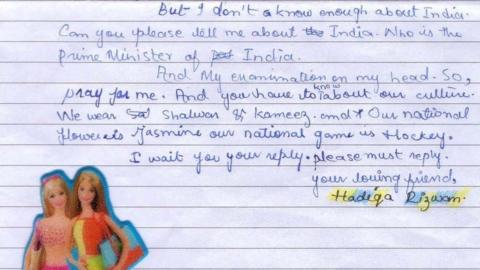 But I don't know enough about India.
Can you please tell me about India. Who is the
prime Minister of India.
And My examination on my head. So,
pray for me. And you have to know about our culture.
We wear Shalwar & Kameez. and Our national
flower is Jasmine our national game is Hockey.
I wait you your reply. please must reply.
your loving friend,
Hadiqa Rizwan.